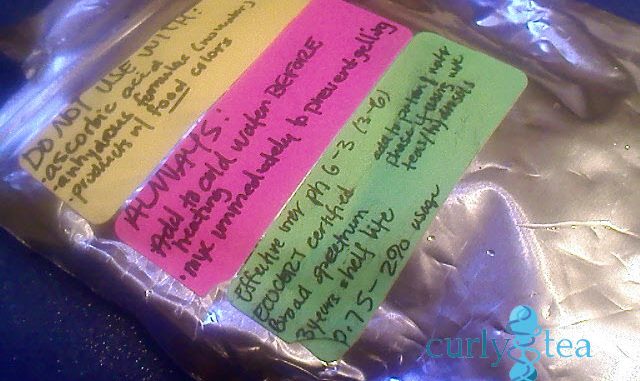 DO NOT USE WITH:
- ascorbic acid
- anhydrous formulas (nowater)
- products w/ food colors
ALWAYS:
Add to cold water BEFORE
heating
- mix immediately to prevent gelling
Effective over pH 6-3 (3-6)
ECOCERT certified
Broad spectrum
3 years shelf life
0.75 - 2% usage
phase if using w/
curly tea